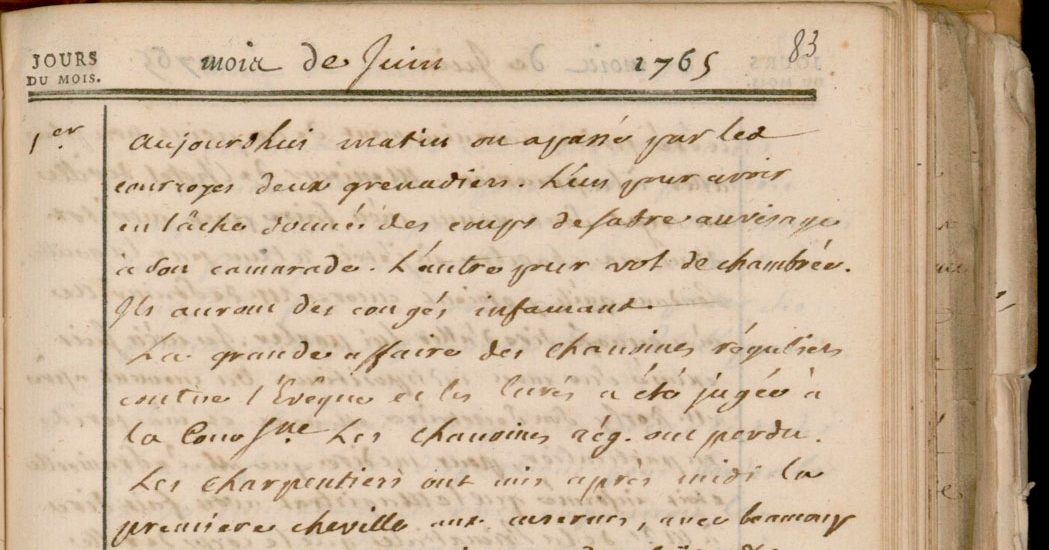 83
JOURS
DU MOIS.
mois de Juin 1765
1er
aujourdhui matin on a passé par les
courroyes deux grenadiers. L'un pour avoir
en lâche donné des coups de sabre au visage
à son camarade. L'autre pour vol de chambrée.
Ils auront des congés infamant.
La grande affaire des chanoines réguliers
contre l'Evêque et les curés a été jugée à
la Cour Sne Les chanoines rég. ont perdu.
Les charpentiers ont mis après midi la
premiere cheville aux casernes, avec beaucoup